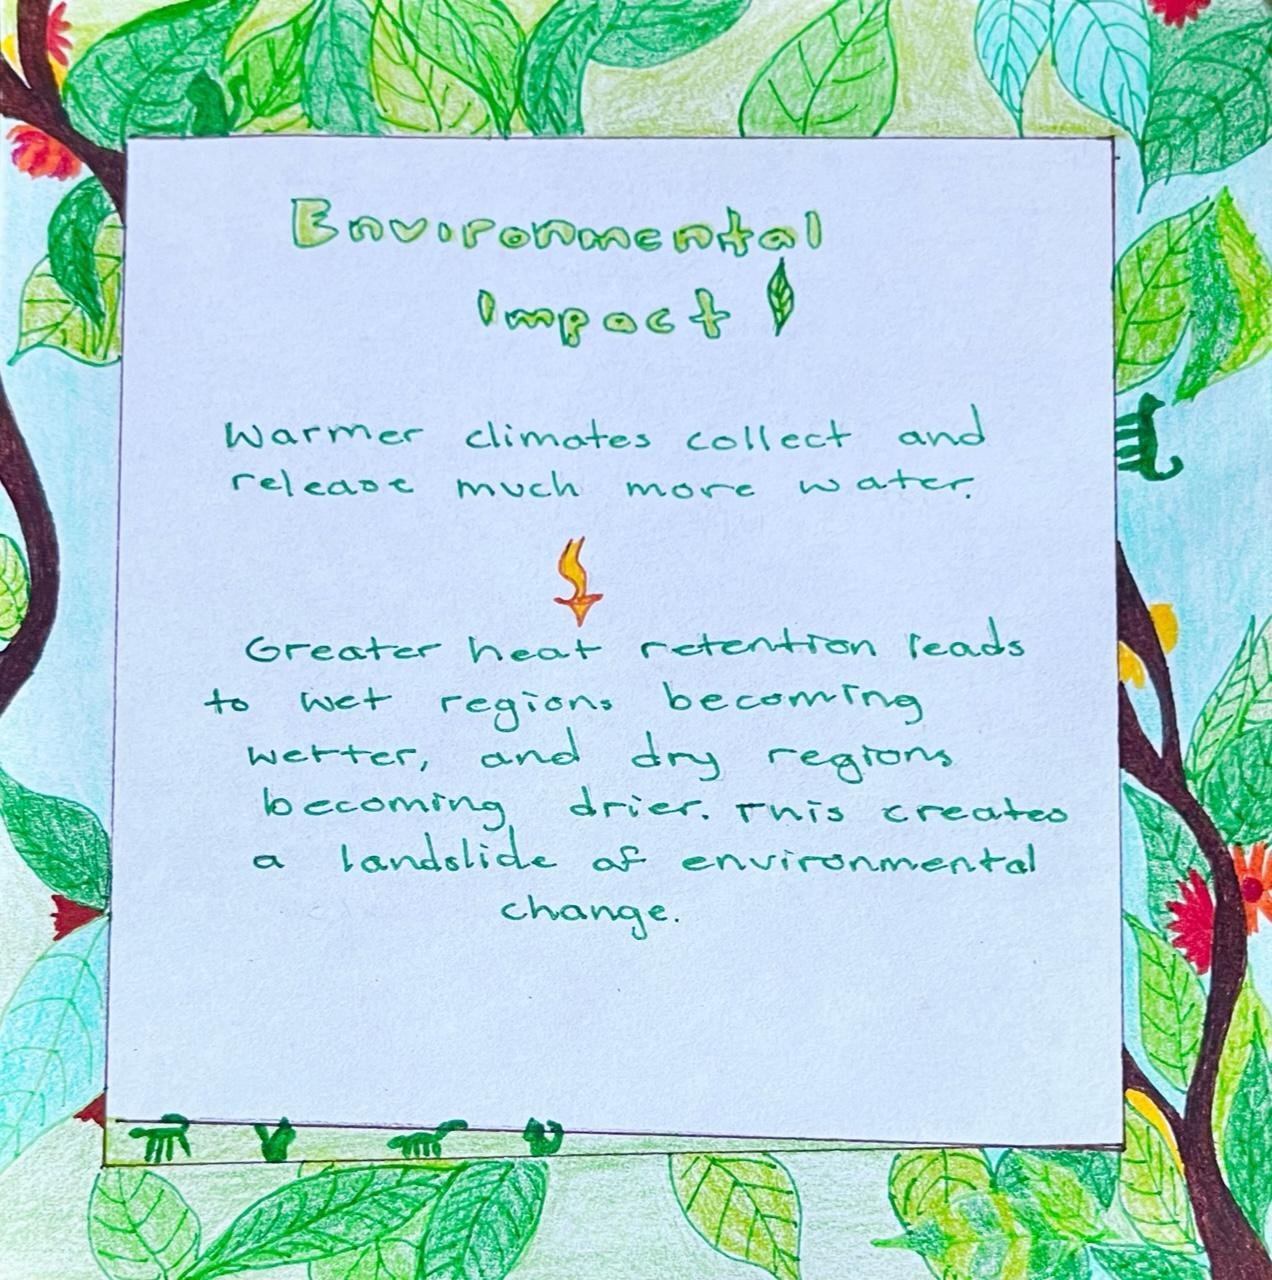 Environmental
Impact
Warmer climates collect and
release much more water.
Greater heat retention leads
to wet regions becoming
wetter, and dry regions
becoming drier. This creates
a landslide of environmental
change.